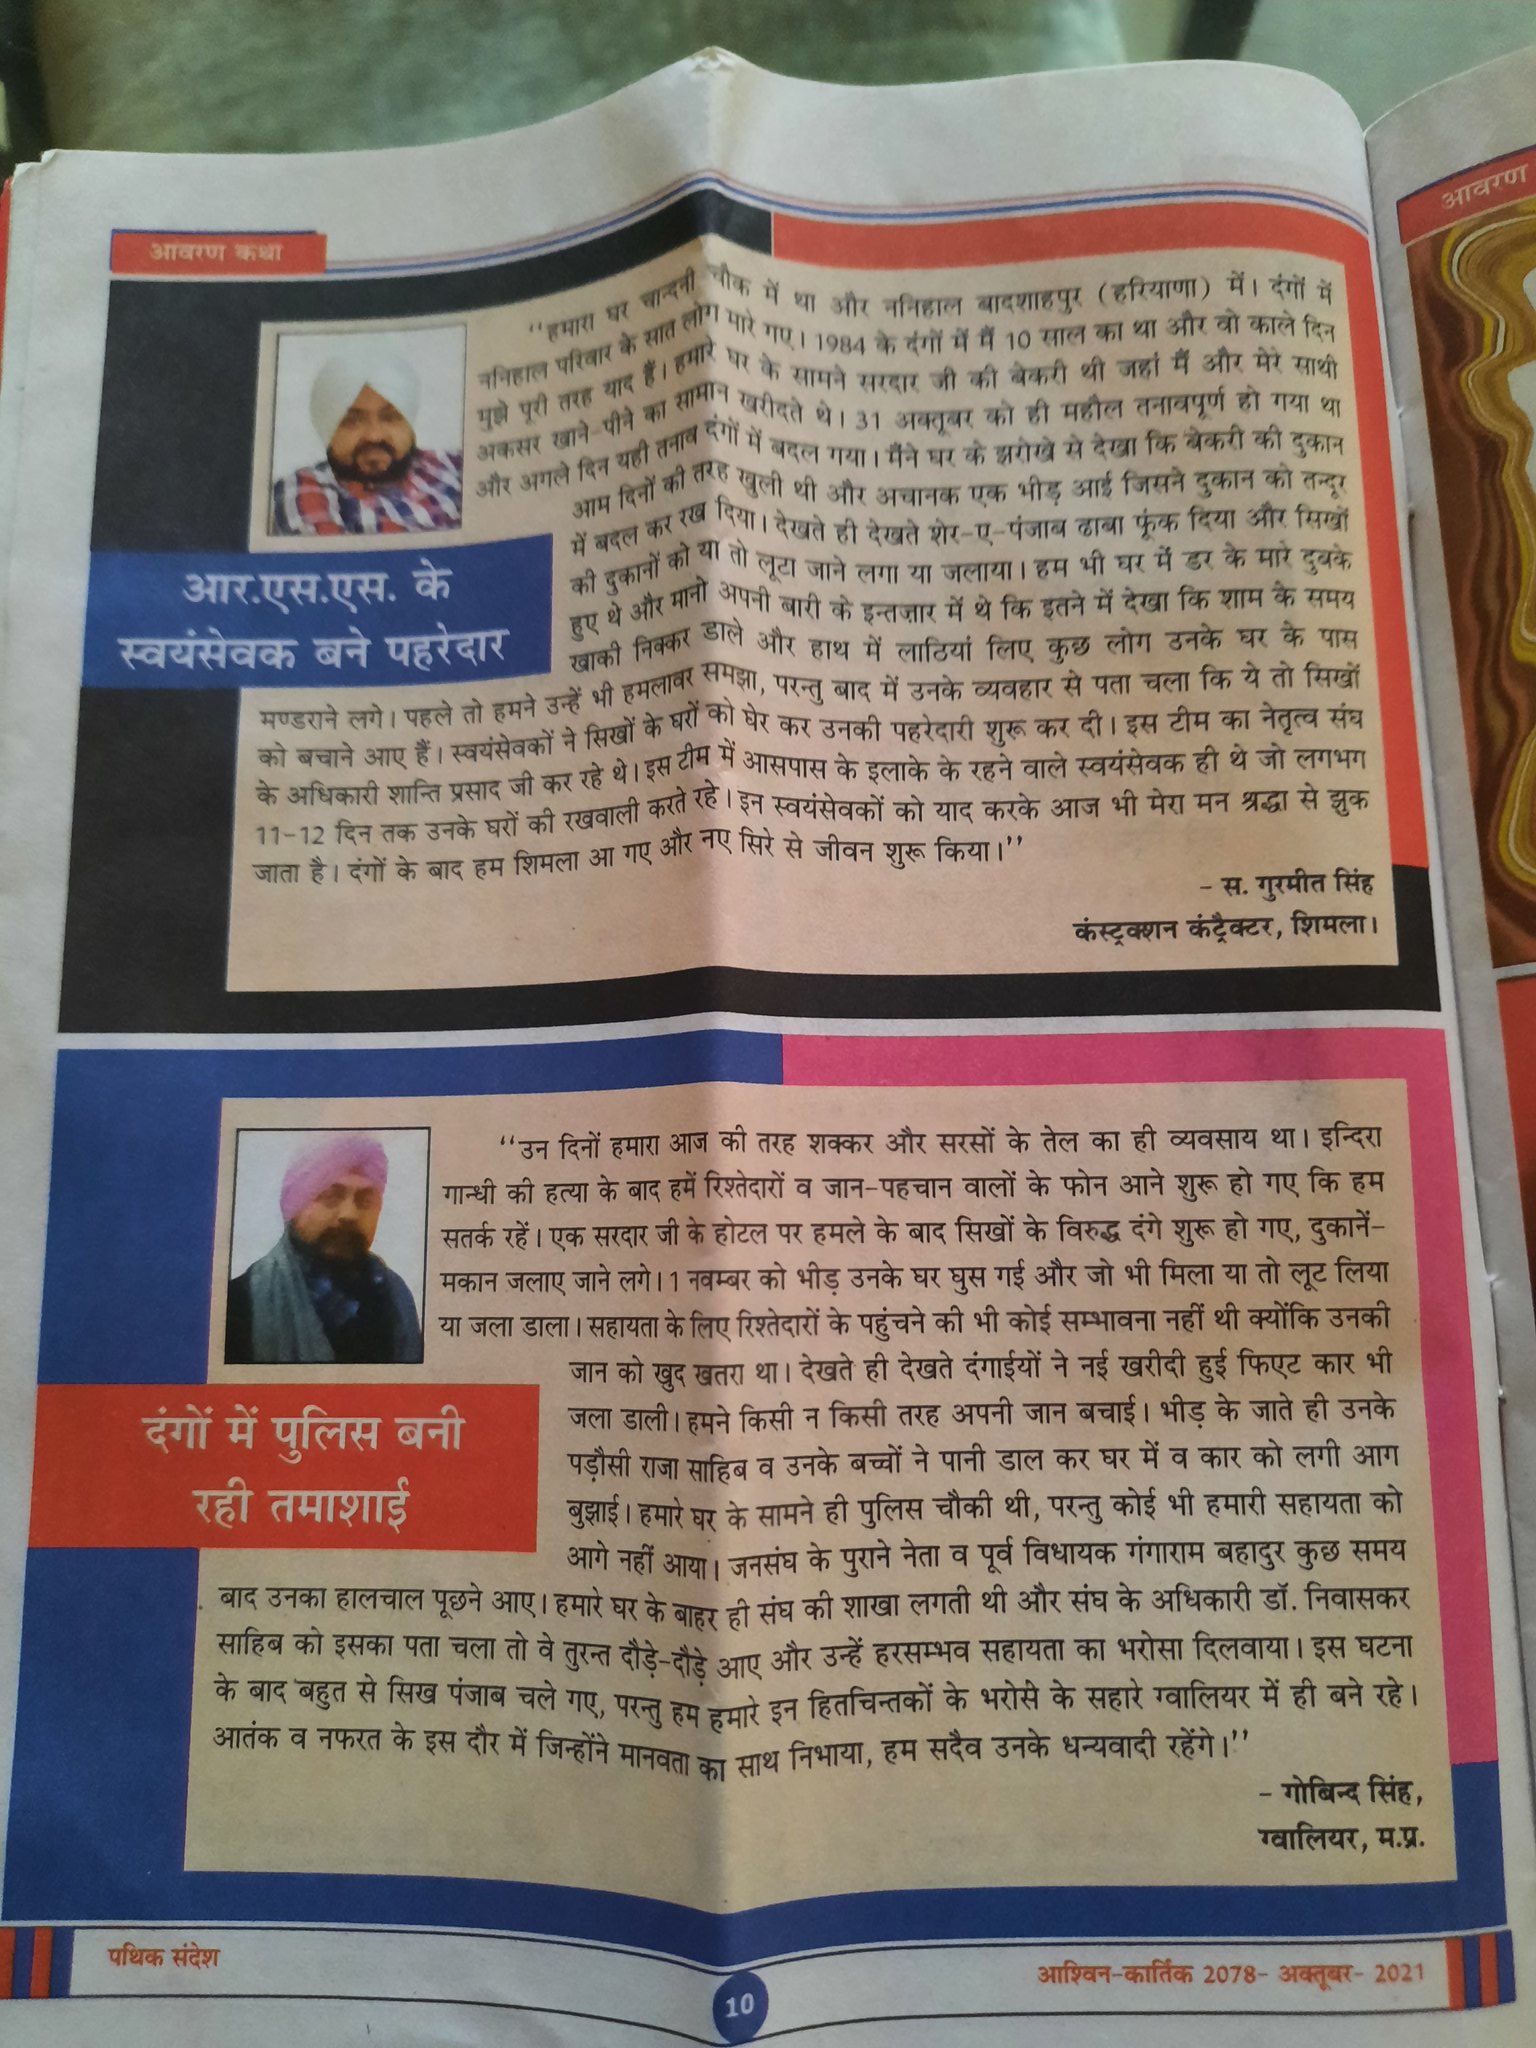 आवरण कथा
आवरण
‘‘हमारा घर चान्दनी चौक में था और ननिहाल बादशाहपुर (हरियाणा) में। दंगों में
ननिहाल परिवार के सात लोग मारे गए। 1984 के दंगों में मैं 10 साल का था और वो काले दिन
मुझे पूरी तरह याद हैं। हमारे घर के सामने सरदार जी की बेकरी थी जहां मैं और मेरे साथी
अकसर खाने-पीने का सामान खरीदते थे। 31 अक्तूबर को ही महौल तनावपूर्ण हो गया था
और अगले दिन यही तनाव दंगों में बदल गया। मैंने घर के झरोखे से देखा कि बेकरी की दुकान
आम दिनों की तरह खुली थी और अचानक एक भीड़ आई जिसने दुकान को तन्दूर
में बदल कर रख दिया। देखते ही देखते शेर-ए-पंजाब ढाबा फूंक दिया और सिखों
की दुकानों को या तो लूटा जाने लगा या जलाया। हम भी घर में डर के मारे दुबके
हुए थे और मानो अपनी बारी के इन्तज़ार में थे कि इतने में देखा कि शाम के समय
खाकी निक्कर डाले और हाथ में लाठियां लिए कुछ लोग उनके घर के पास
मण्डराने लगे। पहले तो हमने उन्हें भी हमलावर समझा, परन्तु बाद में उनके व्यवहार से पता चला कि ये तो सिखों
को बचाने आए हैं। स्वयंसेवकों ने सिखों के घरों को घेर कर उनकी पहरेदारी शुरू कर दी। इस टीम का नेतृत्व संघ
के अधिकारी शान्ति प्रसाद जी कर रहे थे। इस टीम में आसपास के इलाके के रहने वाले स्वयंसेवक ही थे जो लगभग
11-12 दिन तक उनके घरों की रखवाली करते रहे। इन स्वयंसेवकों को याद करके आज भी मेरा मन श्रद्धा से झुक
जाता है। दंगों के बाद हम शिमला आ गए और नए सिरे से जीवन शुरू किया।’’
- स. गुरमीत सिंह
कंस्ट्रक्शन कंट्रैक्टर, शिमला।
आर.एस.एस. के
स्वयंसेवक बने पहरेदार
‘‘उन दिनों हमारा आज की तरह शक्कर और सरसों के तेल का ही व्यवसाय था। इन्दिरा
गान्धी की हत्या के बाद हमें रिश्तेदारों व जान-पहचान वालों के फोन आने शुरू हो गए कि हम
सतर्क रहें। एक सरदार जी के होटल पर हमले के बाद सिखों के विरुद्ध दंगे शुरू हो गए, दुकानें-
मकान जलाए जाने लगे। 1 नवम्बर को भीड़ उनके घर घुस गई और जो भी मिला या तो लूट लिया
या जला डाला। सहायता के लिए रिश्तेदारों के पहुंचने की भी कोई सम्भावना नहीं थी क्योंकि उनकी
जान को खुद खतरा था। देखते ही देखते दंगाईयों ने नई खरीदी हुई फिएट कार भी
जला डाली। हमने किसी न किसी तरह अपनी जान बचाई। भीड़ के जाते ही उनके
पड़ौसी राजा साहिब व उनके बच्चों ने पानी डाल कर घर में व कार को लगी आग
बुझाई। हमारे घर के सामने ही पुलिस चौकी थी, परन्तु कोई भी हमारी सहायता को
आगे नहीं आया। जनसंघ के पुराने नेता व पूर्व विधायक गंगाराम बहादुर कुछ समय
बाद उनका हालचाल पूछने आए। हमारे घर के बाहर ही संघ की शाखा लगती थी और संघ के अधिकारी डॉ. निवासकर
साहिब को इसका पता चला तो वे तुरन्त दौड़े-दौड़े आए और उन्हें हरसम्भव सहायता का भरोसा दिलवाया। इस घटना
के बाद बहुत से सिख पंजाब चले गए, परन्तु हम हमारे इन हितचिन्तकों के भरोसे के सहारे ग्वालियर में ही बने रहे।
आतंक व नफरत के इस दौर में जिन्होंने मानवता का साथ निभाया, हम सदैव उनके धन्यवादी रहेंगे।’’
- गोबिन्द सिंह,
ग्वालियर, म.प्र.
दंगों में पुलिस बनी
रही तमाशाई
पथिक संदेश
10
आश्विन-कार्तिक 2078- अक्तूबर- 2021